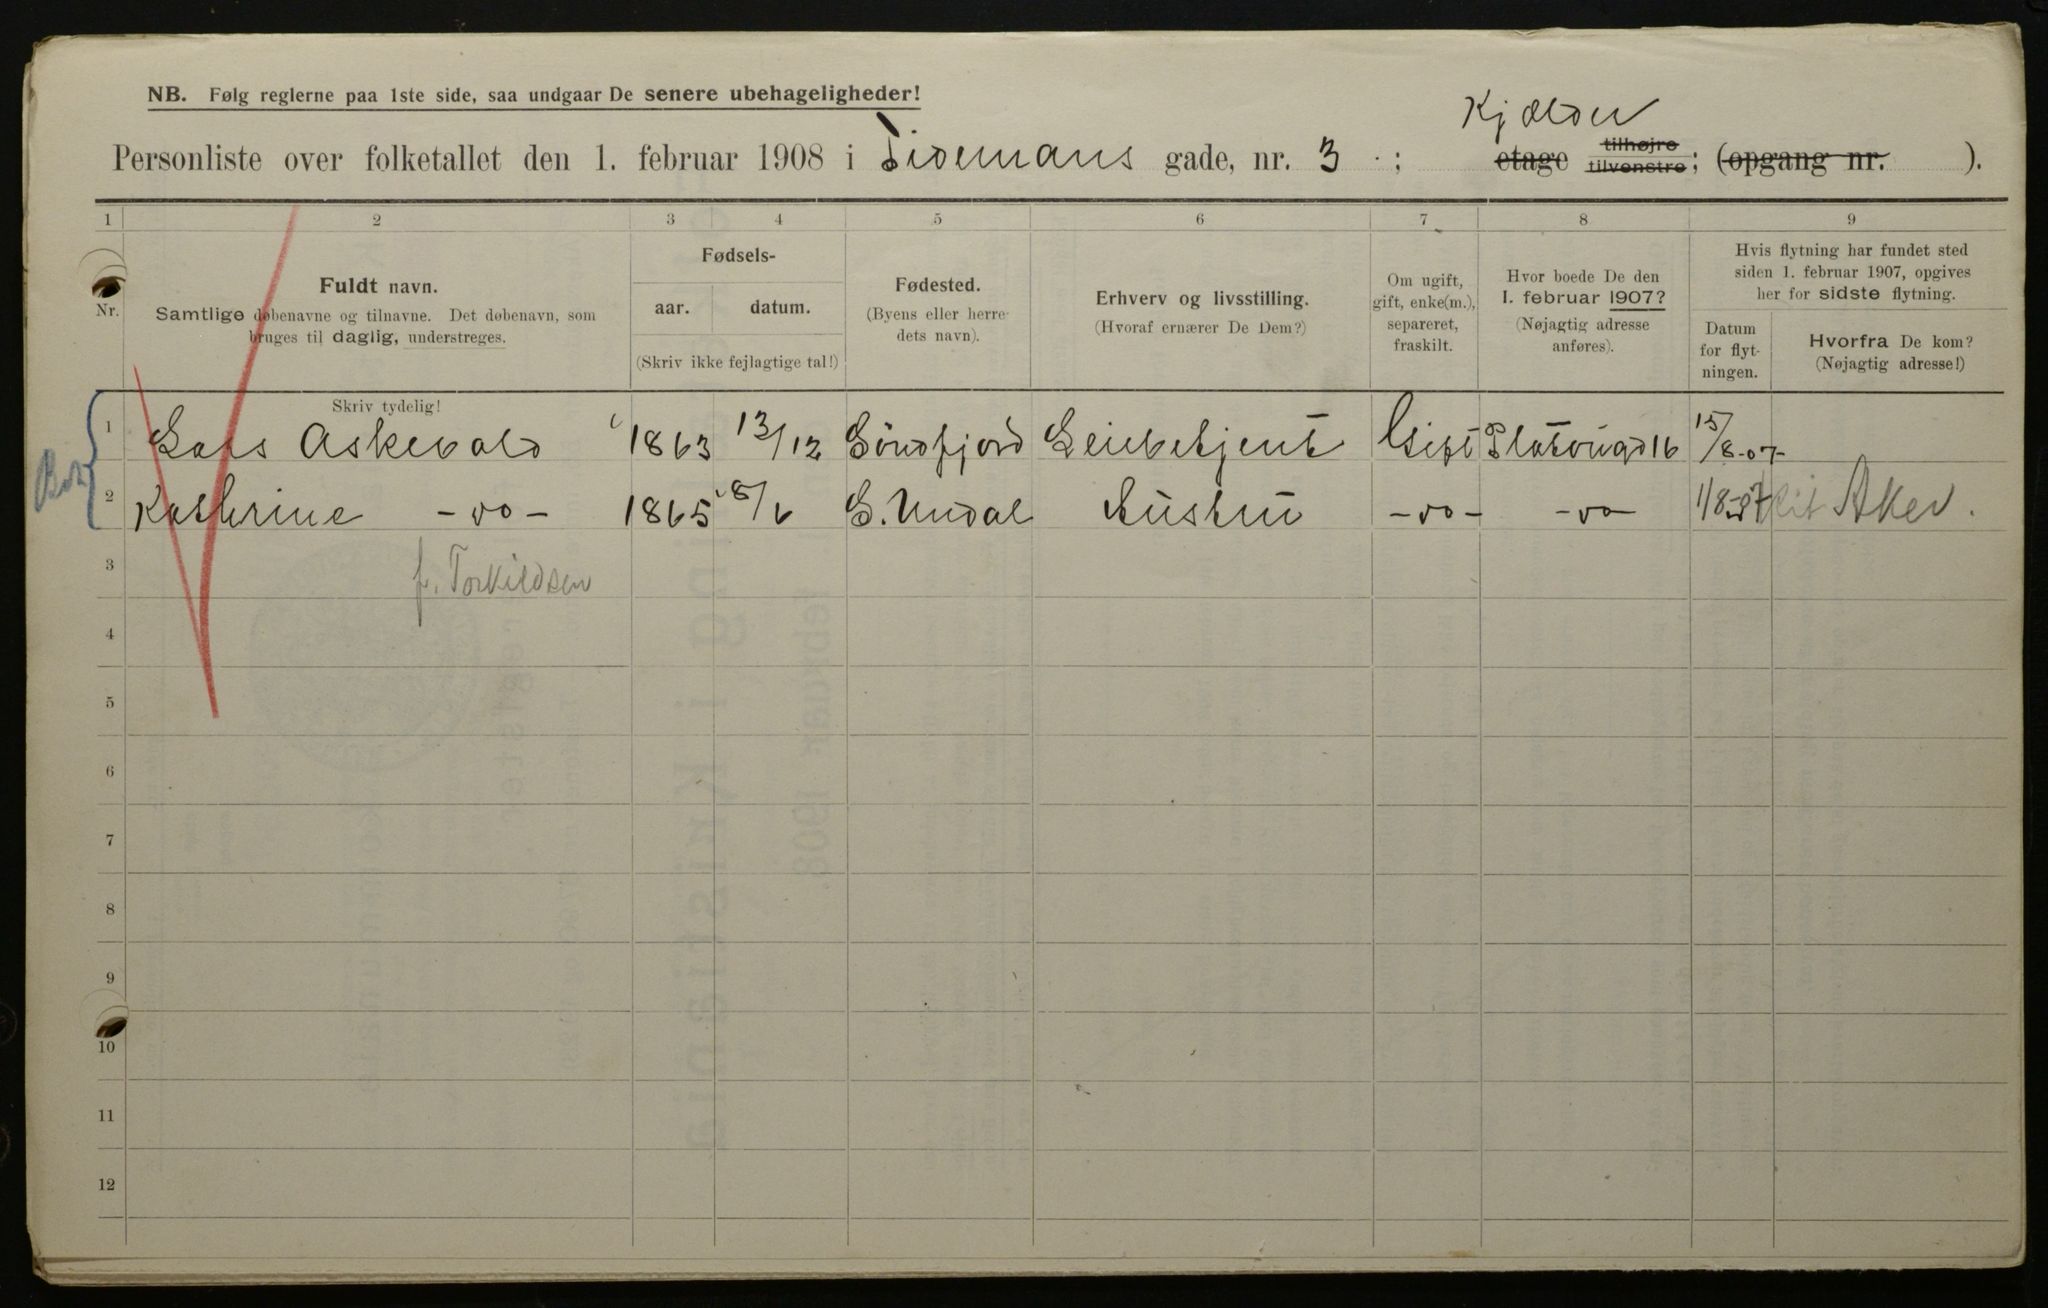 NB. Følg reglerne paa 1ste side, saa undgaar De senere ubehageligheder!
Kjælder
Personliste over folketallet den 1. februar 1908 i Tidemans gade, nr. 3 ; etage tilhøjre tilvenstre; (opgang nr. ).
1 2 3 4 5 6 7 8 9
Nr.
Fuldt navn.
Samtlige døbenavne og tilnavne. Det døbenavn, som
bruges til daglig, understreges.
Fødsels-
aar. datum.
(Skriv ikke fejlagtige tal!)
Fødested.
(Byens eller herre-
dets navn).
Erhverv og livsstilling.
(Hvoraf ernærer De Dem?)
Om ugift,
gift, enke(m.),
separeret,
fraskilt.
Hvor boede De den
1. februar 1907?
(Nøjagtig adresse
anføres).
Hvis flytning har fundet sted
siden 1. februar 1907, opgives
her for sidste flytning.
Datum
for flyt-
ningen.
Hvorfra De kom?
(Nøjagtig adresse!)
Skriv tydelig!
1 Lars Askevold 1863 13/12 Søndfjord Gift 16 15/8-07
2 Kathrine -do- 1865 8/6 S. Undal Hustru -do- -do- Aker.
3 f. Torkildsen
4
5
6
7
8
9
10
11
12